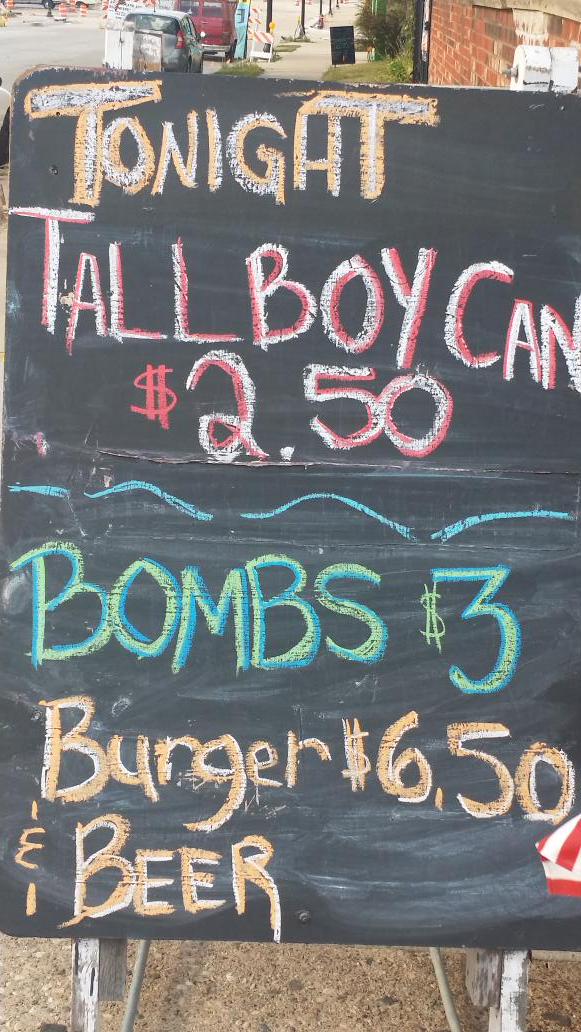 TONIGHT
TALL BOY CAN
$2.50
BOMBS $3
Burger $6.50
& BEER